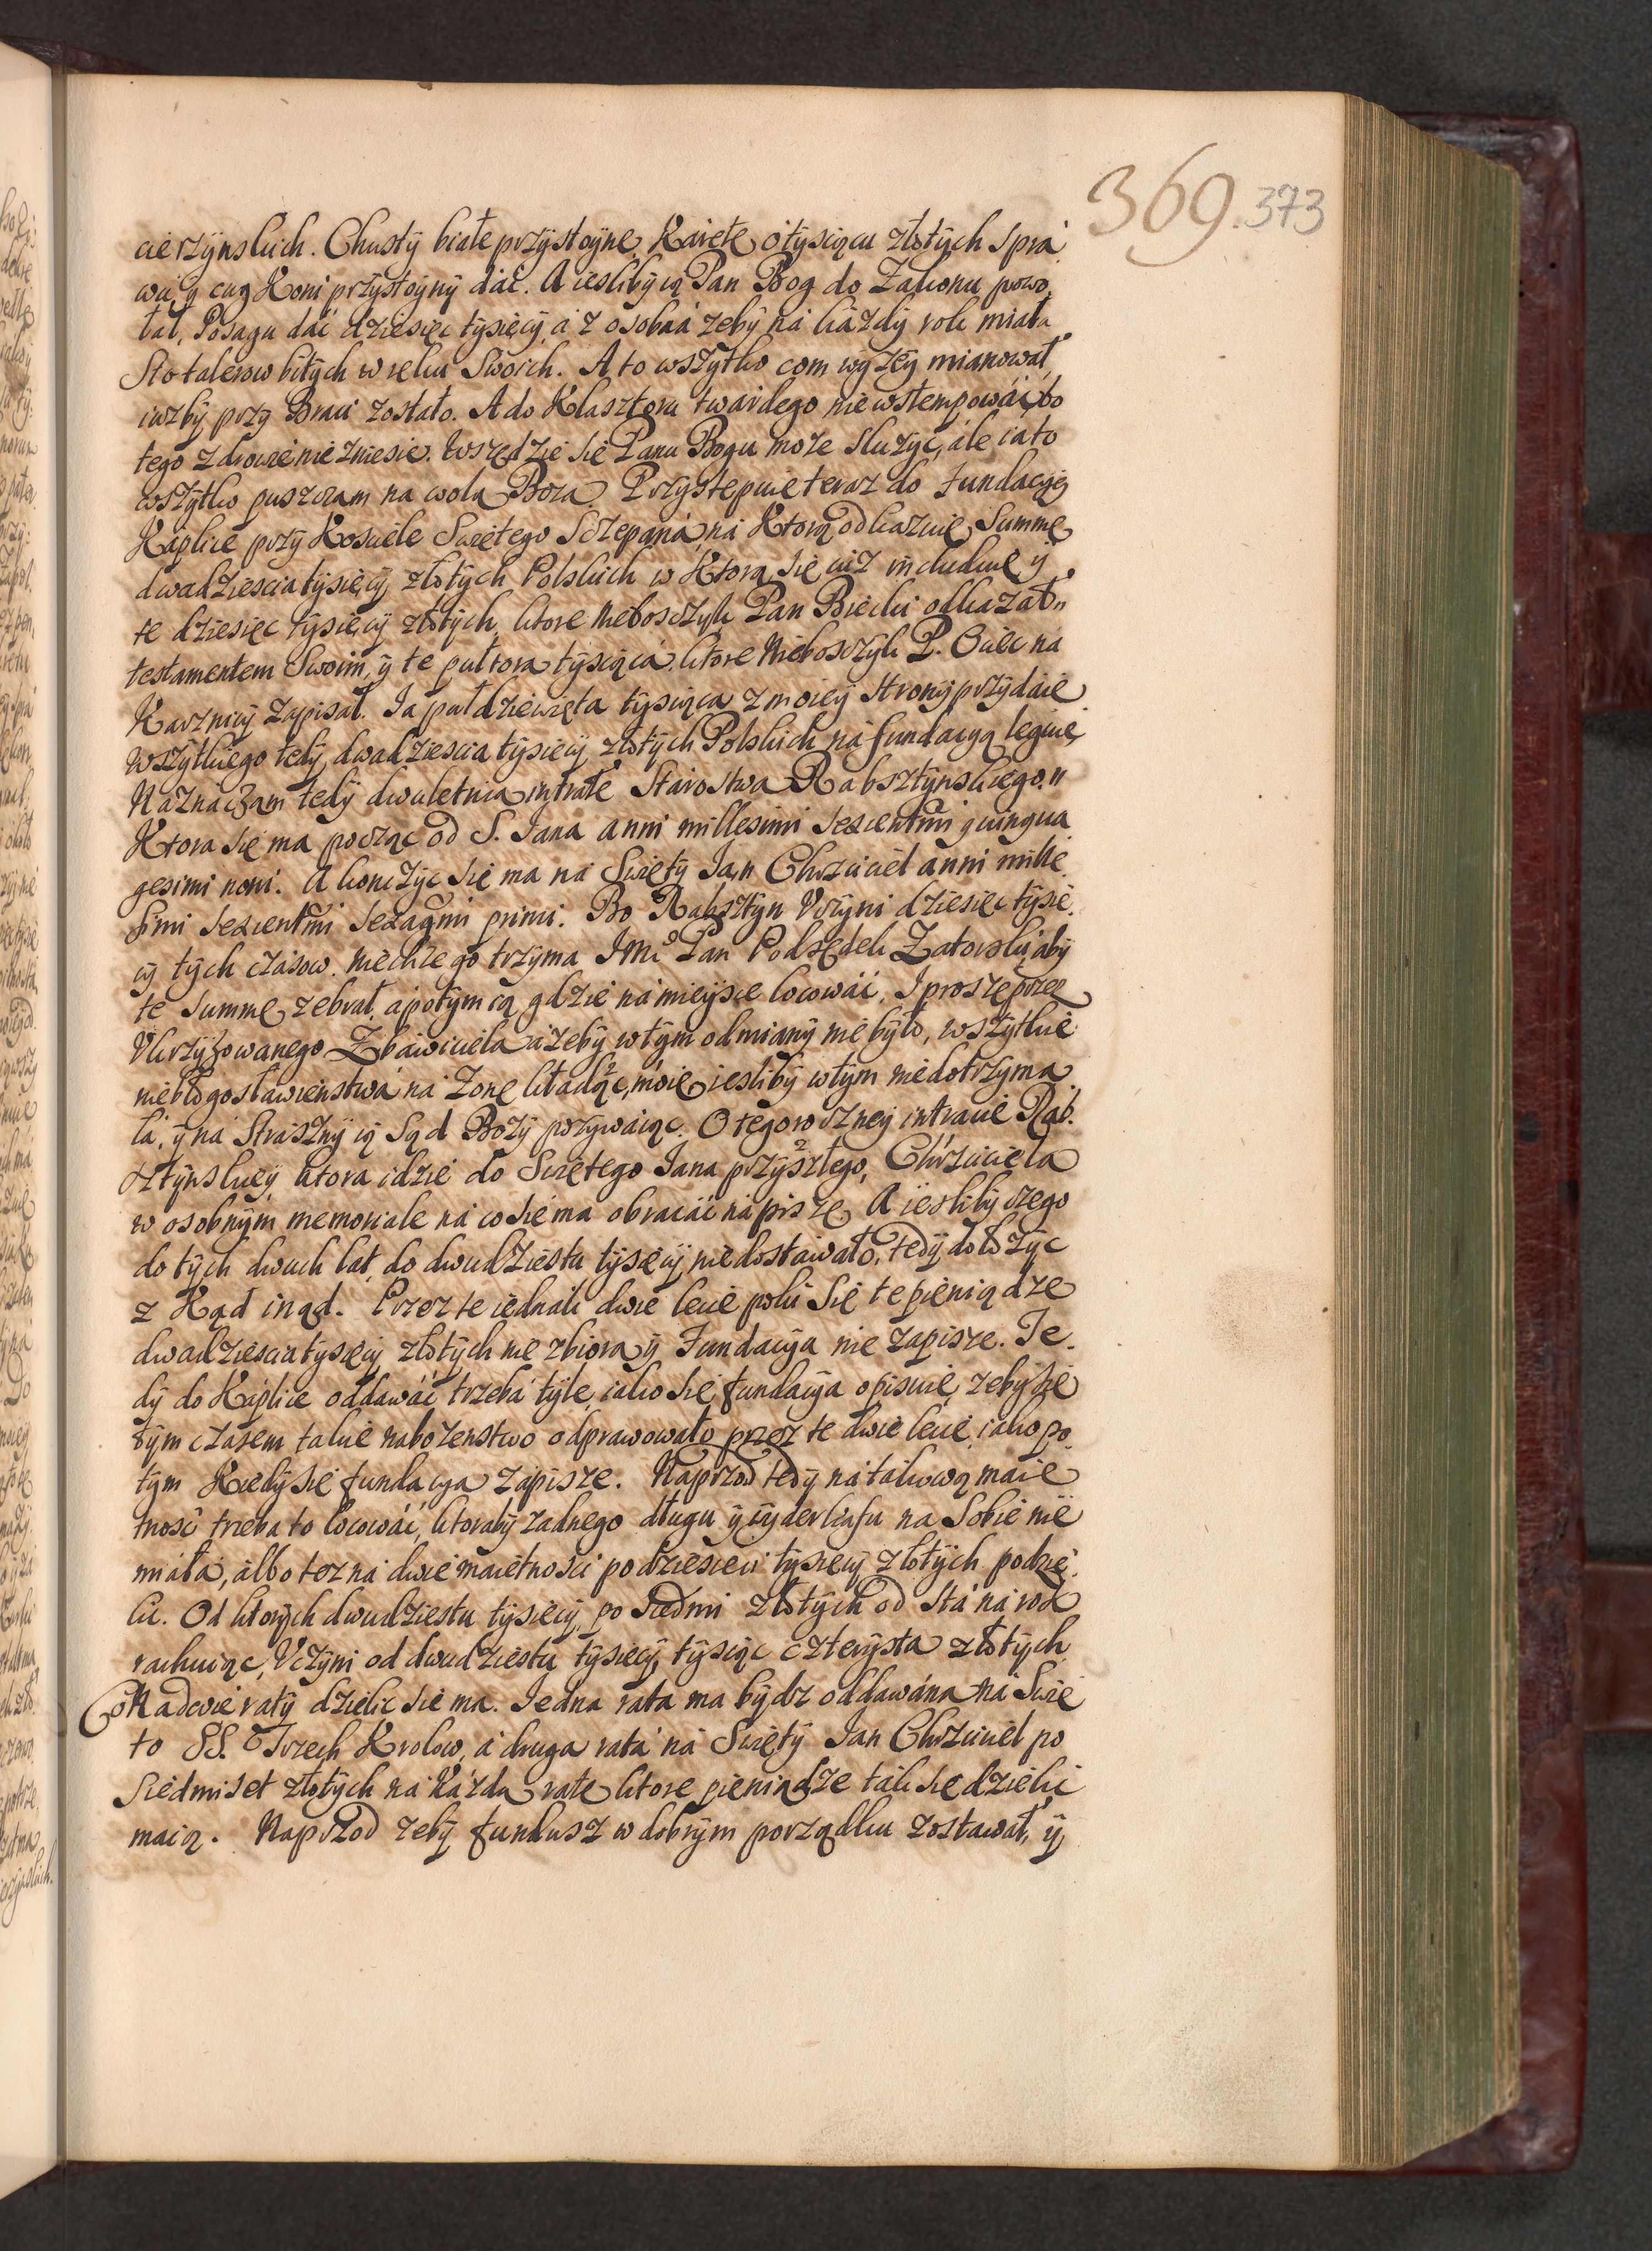 369. 373
cierzynskich. Chusty białe przystoyne, Karetę o tysiącu złotych sprá
wić, y cug Koni przystoyny dáć. A iesliby ią Pan Bog do Zakonu powo
łał, Posagu dáć dziesięć tysięcy, á z osobná zeby ná káżdy rok miáłá
Sto talerow bitych w ręku Swoich. A to wszytko com wyzey mianował,
iużby przy Braci zostało. A do Klasztoru twárdego nie wstempowáć, bo
tego zdrowie nie zniesie. Wszędzie się Panu Bogu moze sluzyć, ále ia to
wszytko puszczam na wolą Bożą. Przystępuię teraz do Fundacyey
Káplice przy Kosciele Swiętego Sczepaná, ná Ktorą odkazuię Summę
dwadziescia tysięcy złotych Polskich w Ktorą się iuż includuie y
te dziesięc tysięcy złotych, ktore Nieboszczyk Pan Biecki odkazał
testamentem Swoim, y te pułtora tysiąca, ktore Nieboszczyk P. Ociec ná
Karznicy zapisał. Ia puł dziewięta tysiąca z moiey strony przydáię.
Wszytkiego tedy dwadziescia tysięcy złotych Polskich, ná fundacyą leguię.
Náznáczam tedy dwuletnią intratę Stárostwa Rabsztynskiego
Ktora się ma począc od S. Iana anni millesimi sexcentmi quinqua
gesimi noni. A konczyc się ma ná Swięty Ian Chrzciciel anni mille
simi sexcentmi sexagmi primi. Bo Rabsztyn Vczyni dziesięc tysię
cy tych czásow. Niechze go trzyma Imć Pan Podsędek Zatorski, áby
te summę zebrał, a potym ią gdzie ná mieysce locowáć. I proszę przez
Vkrzyżowanego Zbáwiciela ażeby w tym odmiany nie było, wszytkie
niebłogosławienstwá ná Zonę kładąc moię iesliby w tym niedotrzyma
łá, y ná Straszny ią Sąd Boży pozywáiąc. O tegoroczney intracie Rab
sztynskiey, ktora idzie do Swiętego Iana przyszłego, Chrzciciela
w osobnym memoriale ná co się ma obracáć nápiszę. A iesliby czego
do tych dwuch lat, do dwudziestu tysięcy niedostáwało, tedy dołożyc
z Kąd inąd. Przez te iednák dwie lecie poki się te pieniądze
dwadziescia tysięcy złotych nie zbiorą y Fundacya nie zapisze. Te
dy do Káplice oddawáć trzebá tyle, iáko się fundacya opisuie, zeby się
tym czasem takie nabożenstwo odprawowało przez te dwie lecie, iako po
tym Kiedy się fundacya zápisze. Naprzod tedy ná takową maię
tność trzeba to locowáć, ktoraby zadnego długu y wyderkafu na Sobie nie
miáłá, álbo też ná dwie maiętności po dziesięci tysięcy złotych podzie
lić. Od ktorych dwudziestu tysięcy, po siedmi złotych od stá ná rok
rachuiąc, Vczyni od dwudziestu tysięcy, tysiąc czterysta złotych
Co Na dwie raty dzielic się ma. Iedna rata ma bydz oddawána ná Swię
to SS. Trzech Krolow, á druga ratá ná Swięty Ian Chrzciciel po
siedmiset złotych ná Káżdą ratę, ktore pieniądze ták się dzielić
maią. Naprzod zeby fundusz w dobrym porządku zostawał, y